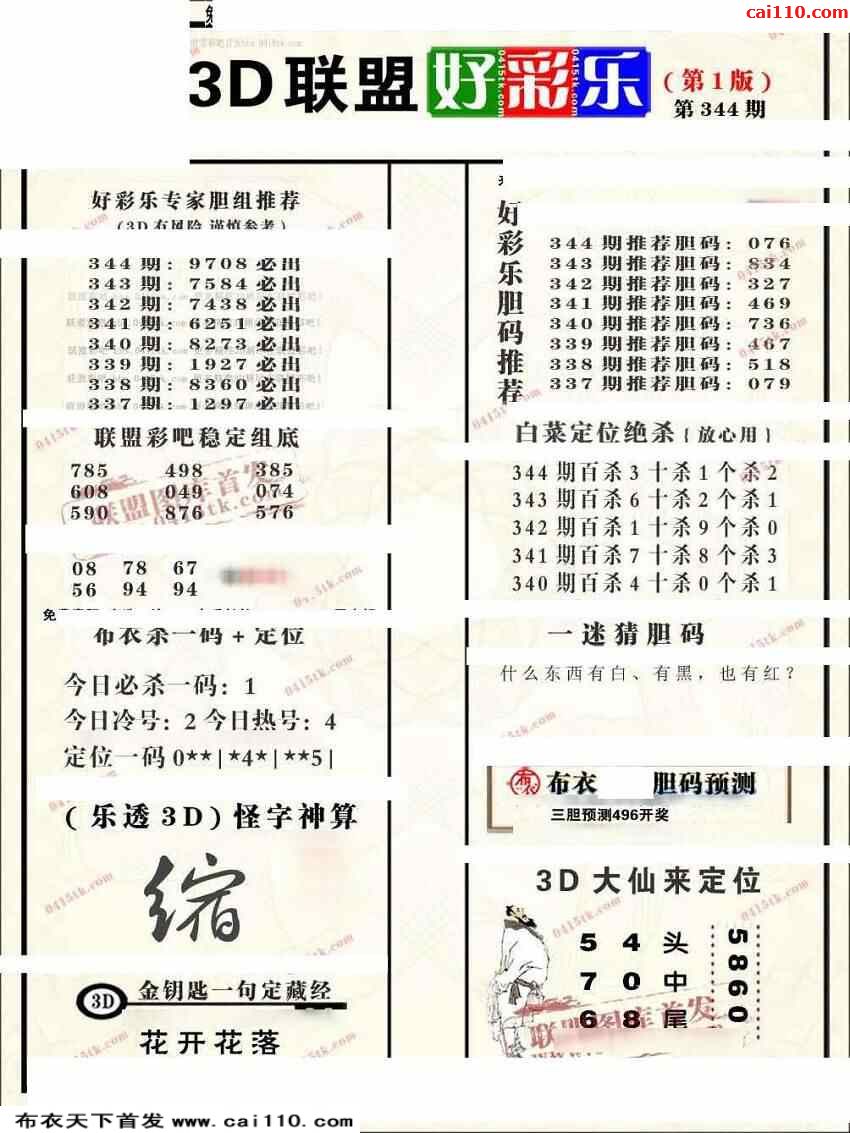 cai110.com
3D联盟好彩乐
(第1版)
第344期
好彩乐专家胆组推荐
(3D有风险 谨慎参考)
344期: 9708必出
343期: 7584必出
342期: 7438必出
341期: 6251必出
340期: 8273必出
339期: 1927必出
338期: 8360必出
337期: 1297必出
联盟彩吧稳定组底
785 498 385
608 049 074
590 876 576
08 78 67
56 94 94
布衣杀一码+定位
今日必杀一码: 1
今日冷号: 2 今日热号: 4
定位一码 0**|*4*|**5|
(乐透3D)怪字神算
缩
3D 金钥匙一句定藏经
花开花落
好彩乐胆码推荐
344期推荐胆码: 076
343期推荐胆码: 834
342期推荐胆码: 327
341期推荐胆码: 469
340期推荐胆码: 736
339期推荐胆码: 467
338期推荐胆码: 518
337期推荐胆码: 079
白菜定位绝杀{放心用}
344期百杀3十杀1个杀2
343期百杀6十杀2个杀1
342期百杀1十杀9个杀0
341期百杀7十杀8个杀3
340期百杀4十杀0个杀1
一迷猜胆码
什么东西有白、有黑，也有红?
布衣 布衣 胆码预测
三胆预测496开奖
3D大仙来定位
5 4 头
7 0 中
6 8 尾
5860
联盟图库首发
0415tk.com
布衣天下首发 www.cai110.com